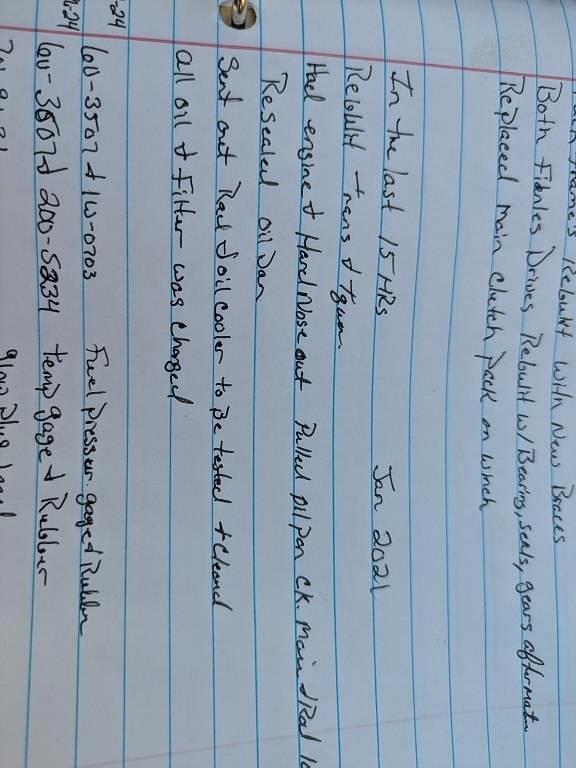 Rebuilt with New Braces
Both Finales Drives Rebuilt w/ Bearing, seals, gears aftermatn
Replaced main clutch pack on winch
In the last 15 HRs Jan 2021
Rebuilt trans &
Had engine & Hard Nose out Pulled oil pan ck. main & Rod
Resealed oil pan
Sent out Rad & oil cooler to be tested & cleand
All oil & Filter was changed
-24
60-3507 & 1W-0703 Fuel pressur gage & Rubber
-24
60-3507 & 200-5234 temp gage & Rubber
glow plug